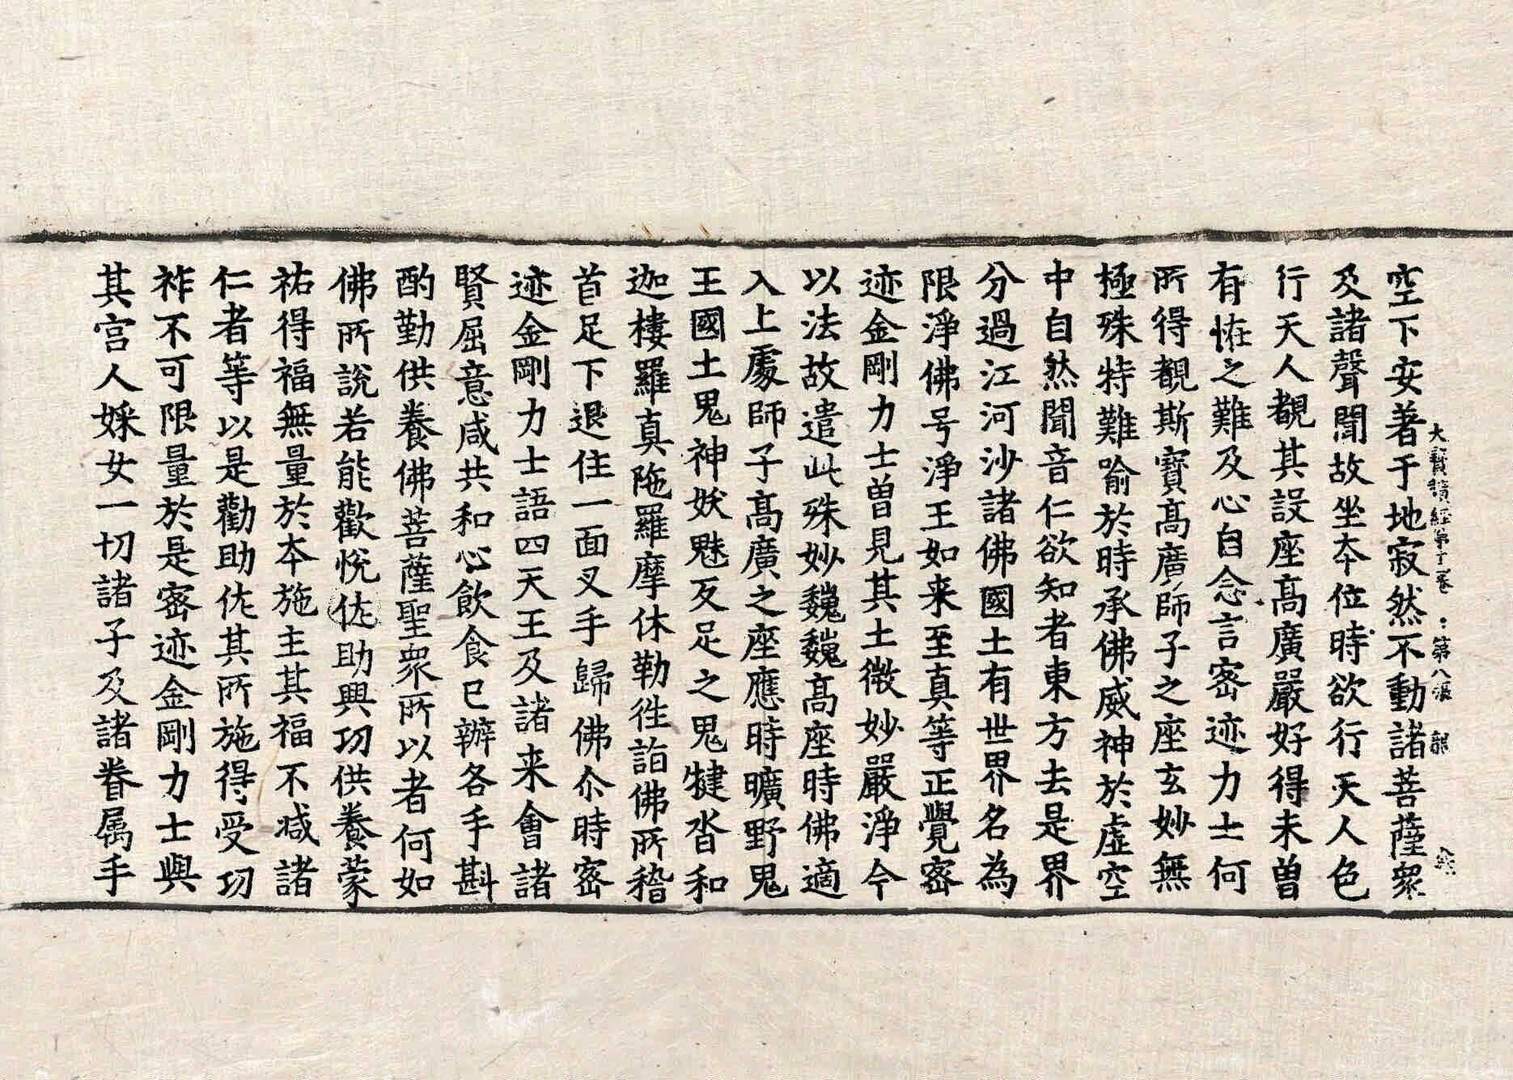 大寶積經第十一卷 第八張 龍
空下安著于地寂然不動諸菩薩衆
及諸聲聞故坐夲位時欲行天人色
行天人覩其設座高廣嚴好得未曽
有恠之難及心自念言密迹力士何
所得覩斯寶高廣師子之座玄妙無
極殊特難喻於時承佛威神於虛空
中自然聞音仁欲知者東方去是界
分過江河沙諸佛國土有世界名為
限淨佛号淨王如来至真等正覺密
迹金剛力士曽見其土微妙嚴淨令
以法故遣此殊妙巍巍高座時佛適
入上處師子高廣之座應時曠野鬼
王國土鬼神妖魅及足之鬼犍沓和
迦樓羅真陁羅摩休勒徃詣佛所稽
首足下退住一面叉手歸佛尒時密
迹金剛力士語四天王及諸来會諸
賢屈意咸共和心飲食已辦各手斟
酌勤供養佛菩薩聖衆所以者何如
佛所說若能歡悅佐助興功供養蒙
祐得福無量於夲施主其福不減諸
仁者等以是勸助佐其所施得受功
祚不可限量於是密迹金剛力士與
其宫人婇女一切諸子及諸眷属手